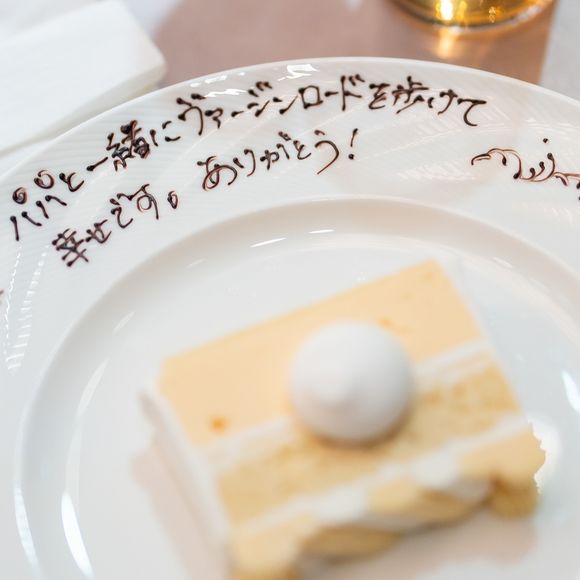 パパと一緒にヴァージンロードを歩けて
幸せです。ありがとう!